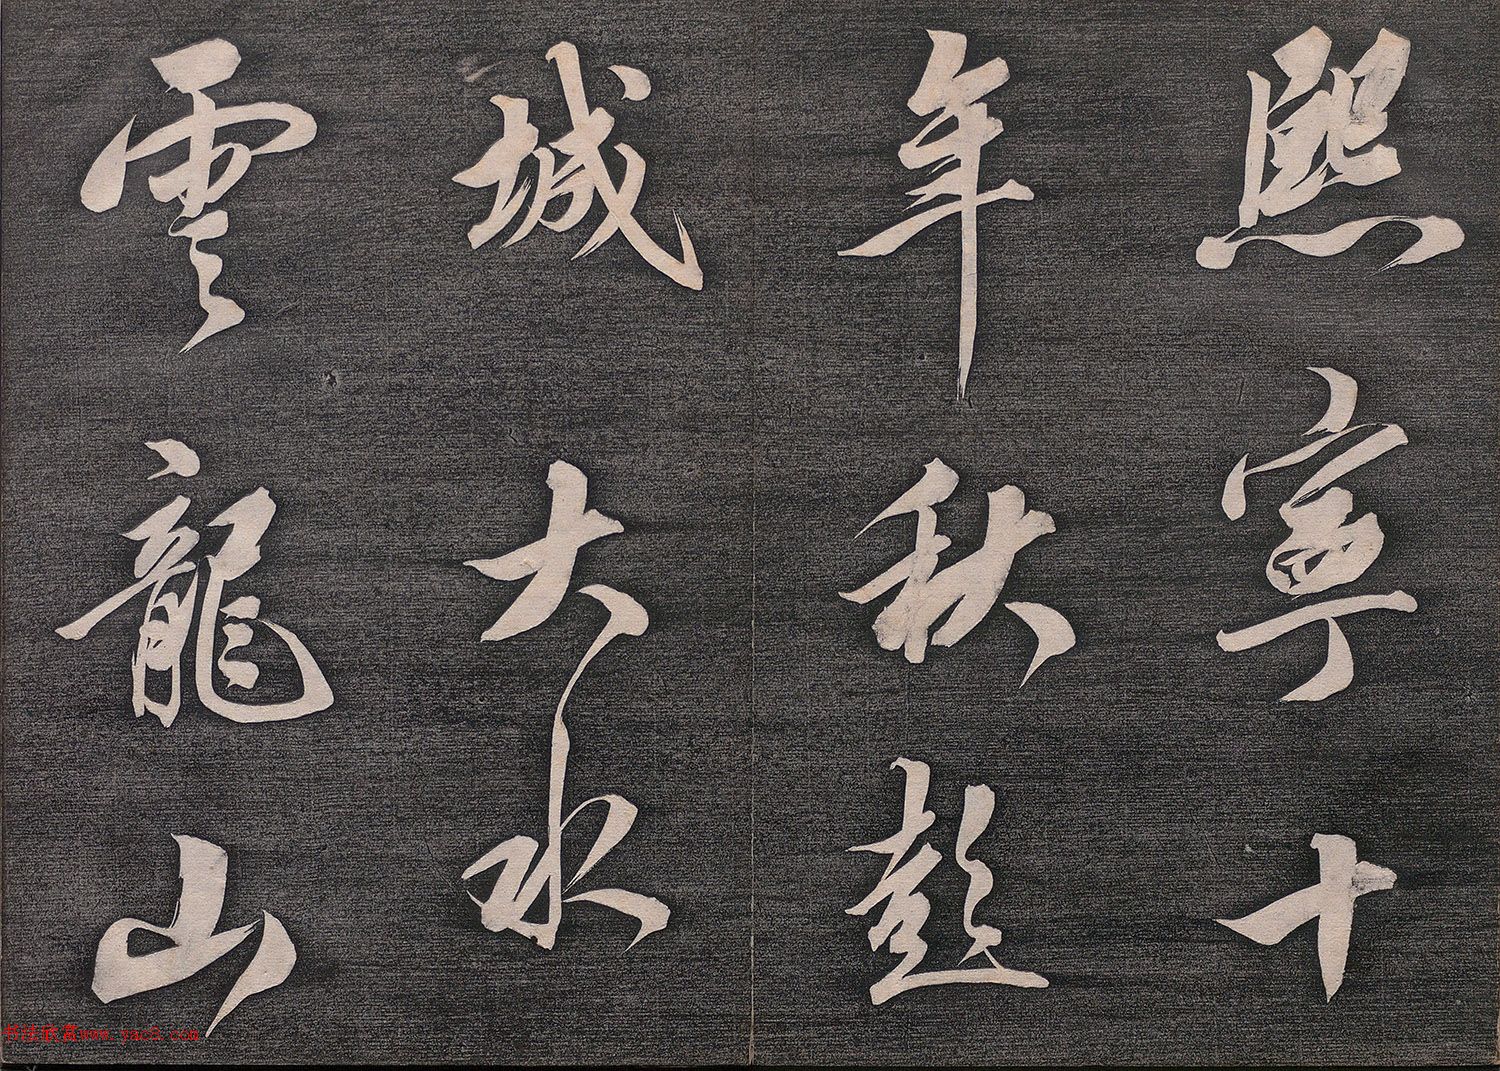 熙寧十
年秋彭
城大水
雲龍山
书法欣赏www.yac8.com